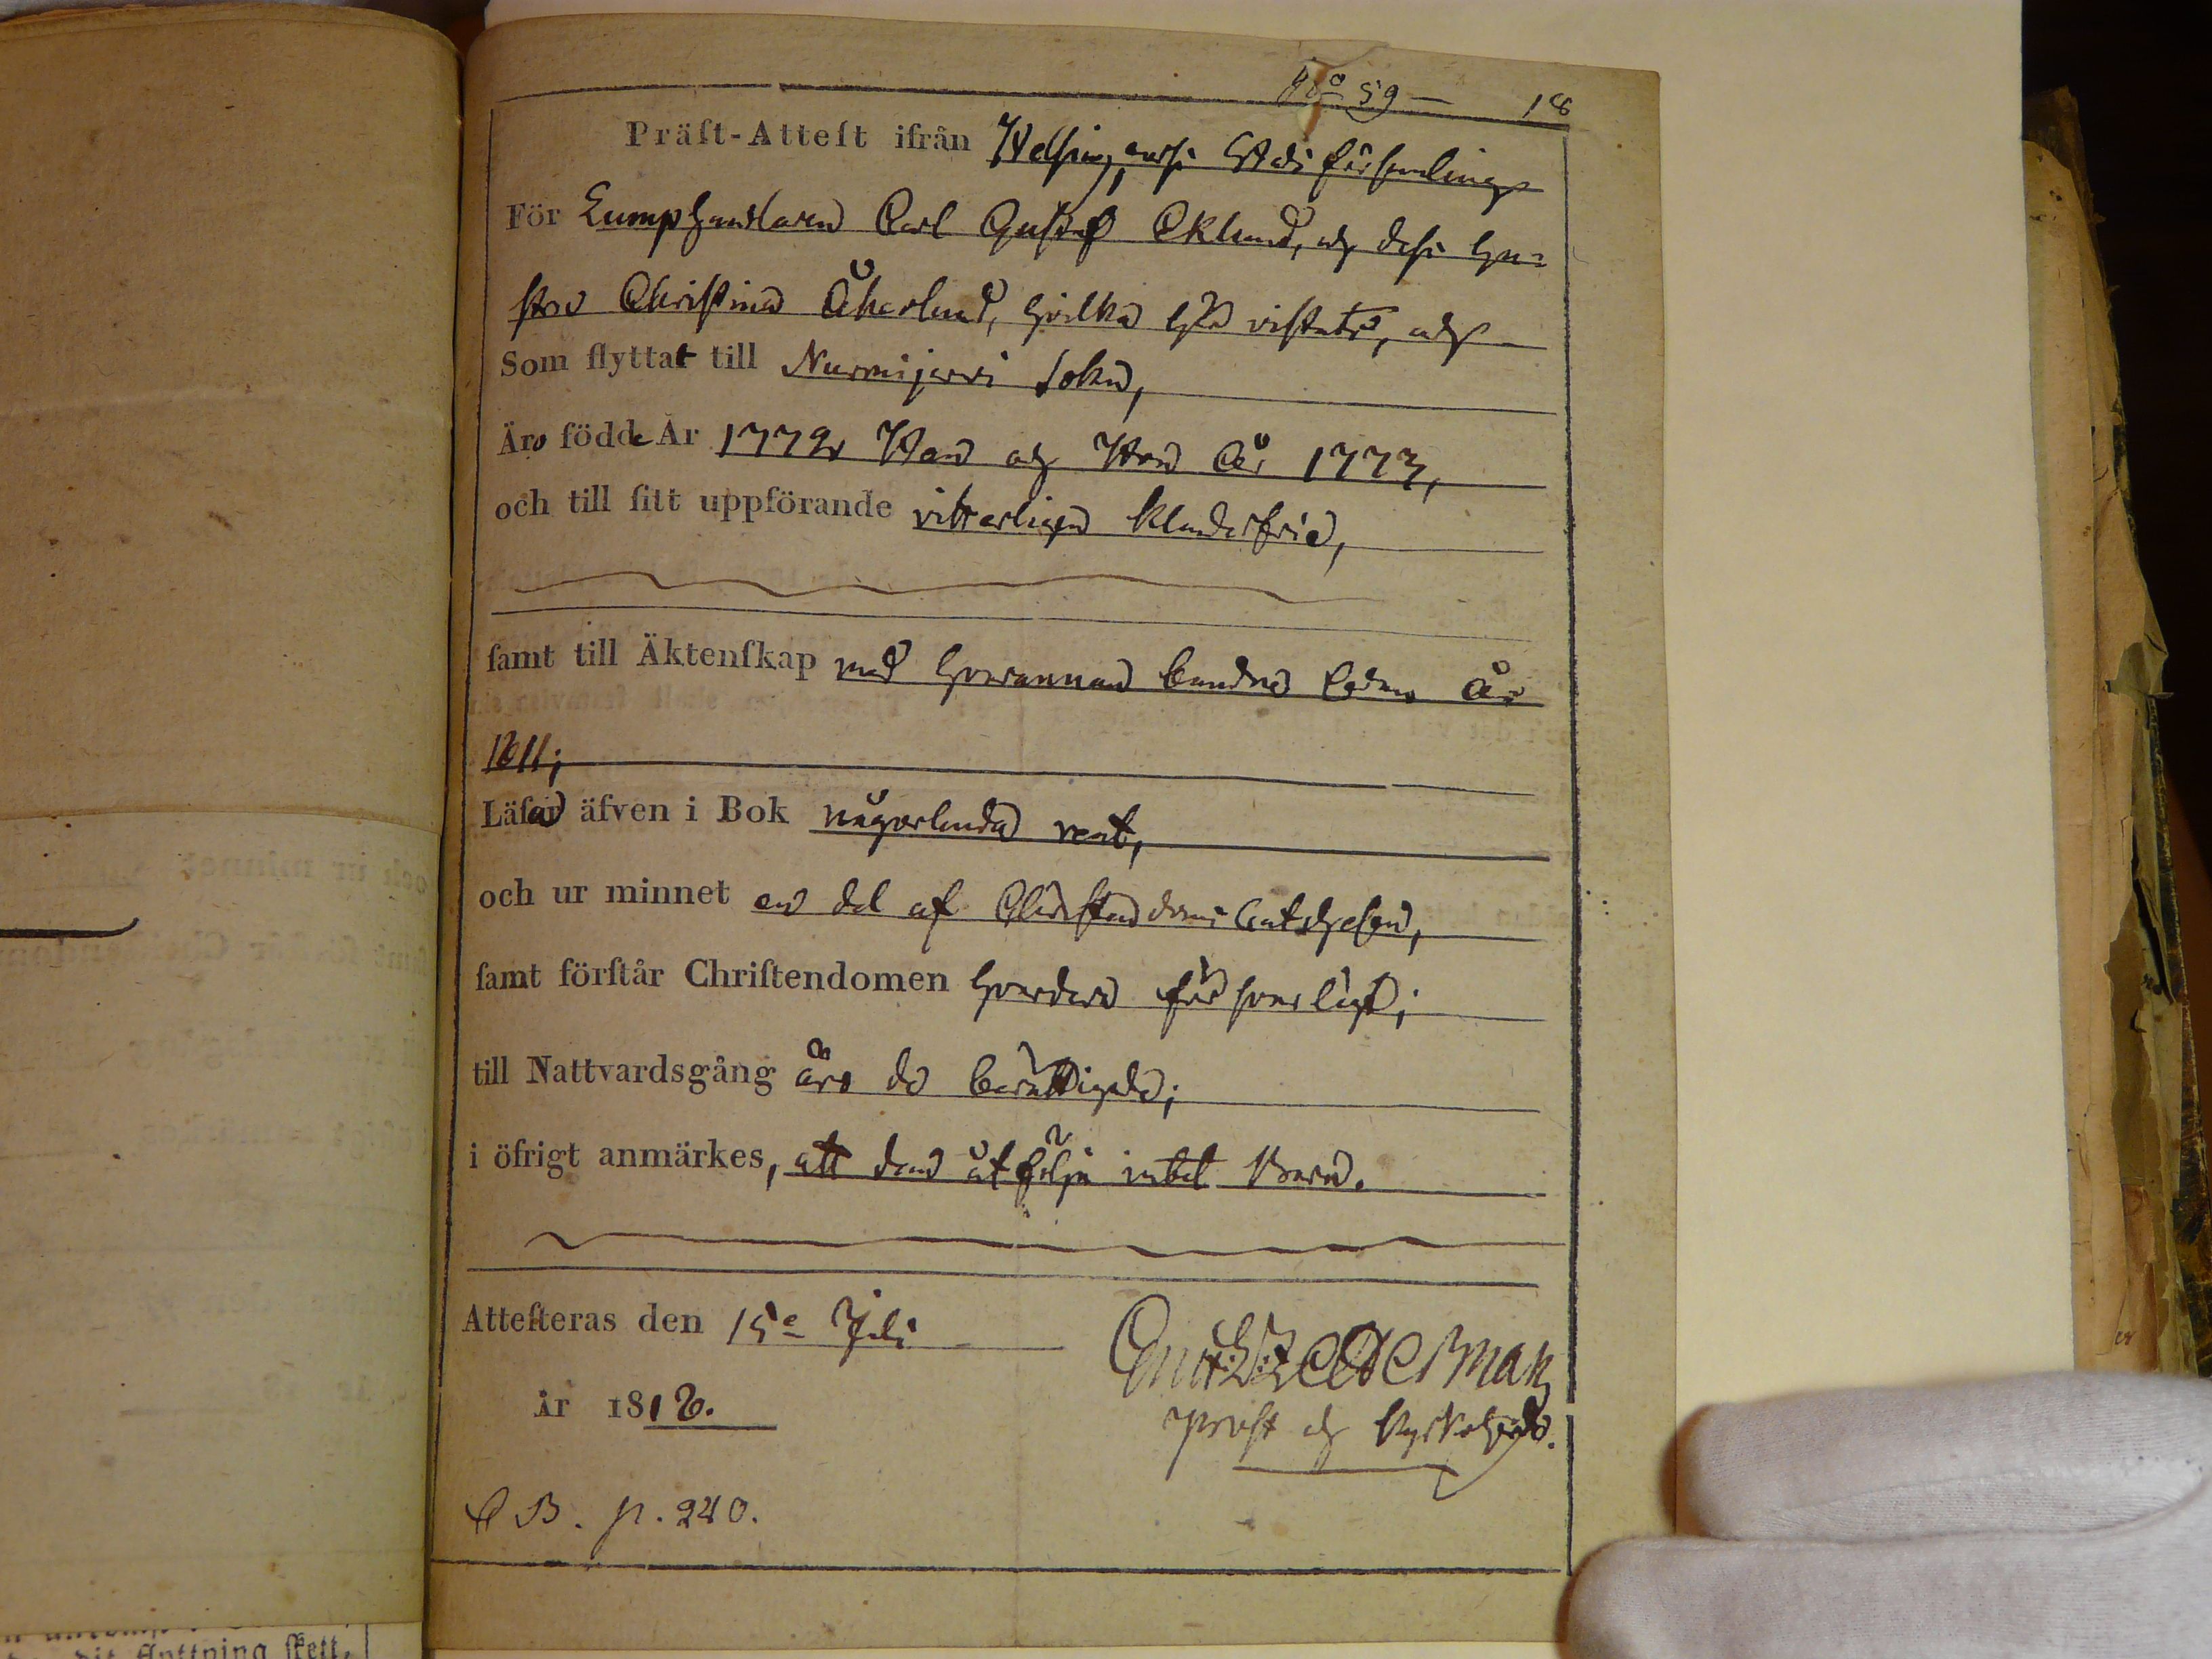 No 59 — 18
Präſt-Atteſt ifrån Helsingfors Stads församling
För Lumphandlaren Carl Gustaf Eklund, och dess hu-
stru Christina Åkerlund, hvilka här vistats, och
Som flyttat till Nurmijervi Sokn,
Äro födde År 1772 Han och Hon År 1773,
och till ſitt uppförande vitterligen klanderfria,
ſamt till Äktenſkap med hvarannan bundna sedan år
1811;
Läſa äfven i Bok någorlunda rent,
och ur minnet en del af Christendoms Catechesen,
ſamt förſtår Chriſtendomen hvardera försvarligt;
till Nattvardsgång äro de berättigade;
i öfrigt anmärkes, att dem åtfölja intet Barn.
Atteſteras den 15e Juli
år 1818.
Prost och Kyrkoherde.
C B. p. 240.
och ur minnet
dit flyttning ſkett,